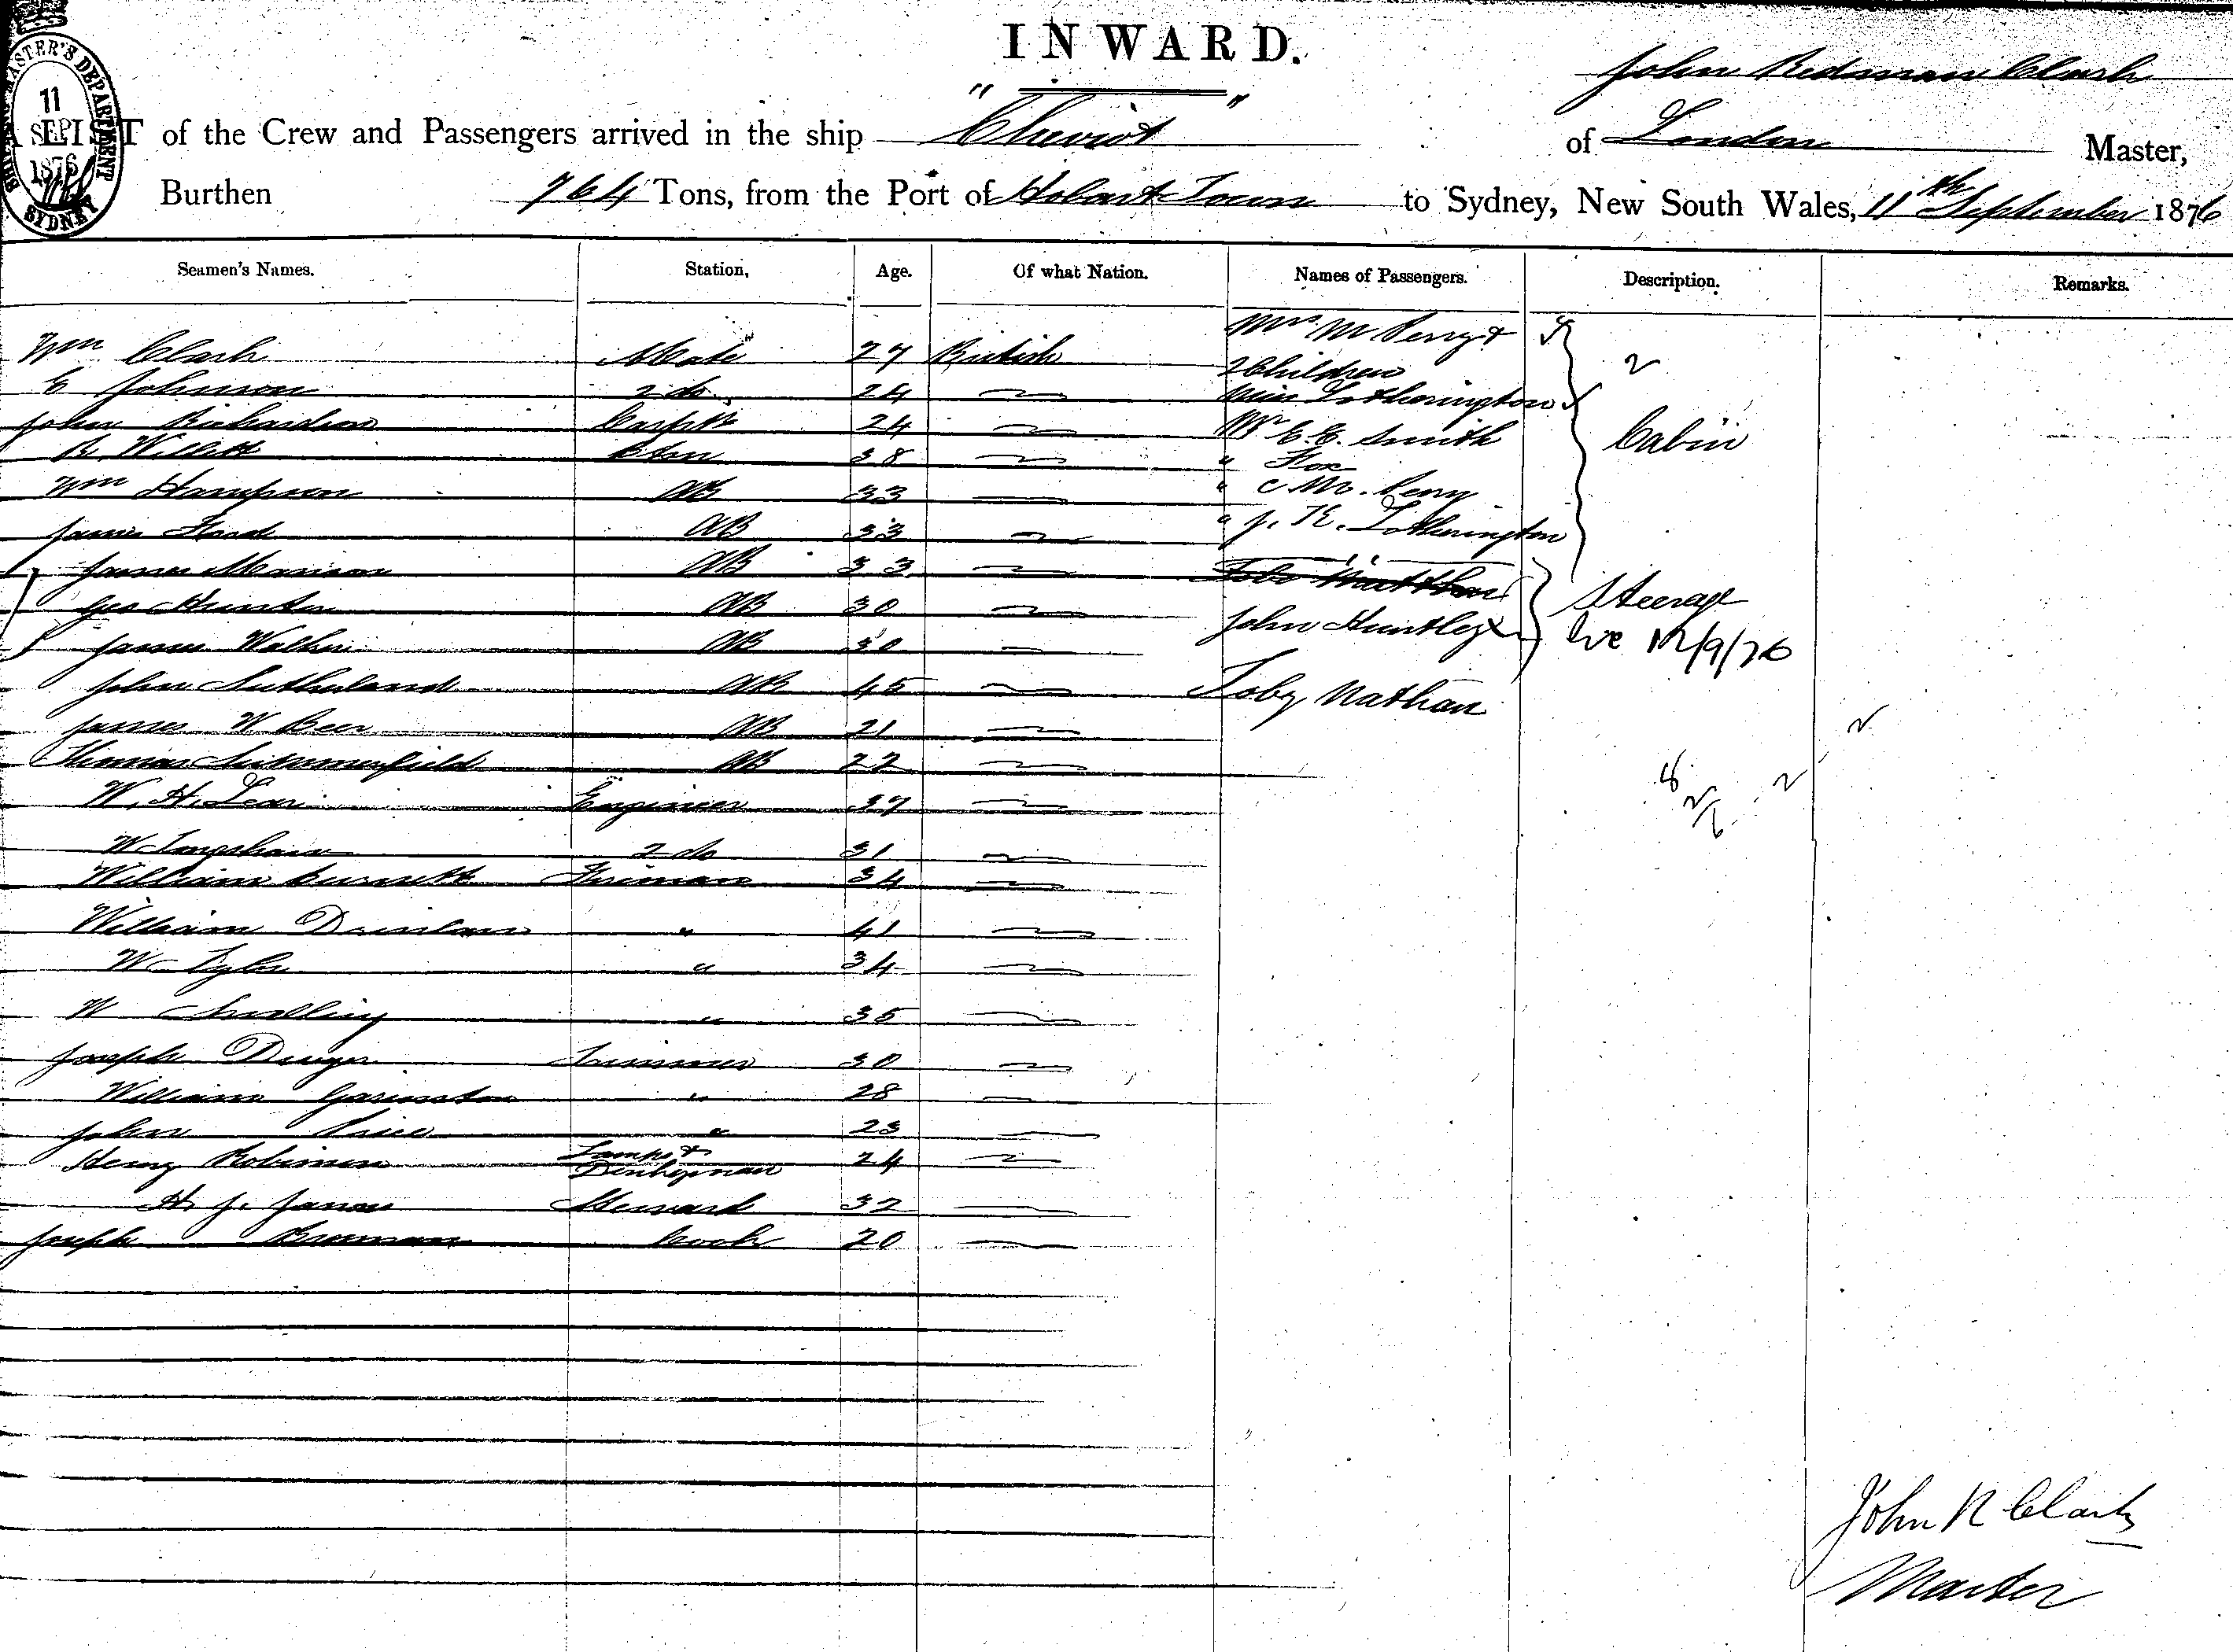 INWARD.
SHIPPING MASTER'S DEPARTMENT
11
SEP
1876
SYDNEY
John Redman Clark
A LIST of the Crew and Passengers arrived in the ship "Cheviot" of London Master,
Burthen 764 Tons, from the Port of Hobart Town to Sydney, New South Wales, 11th September 1876
Seamen's Names. Station, Age. Of what Nation. Names of Passengers. Description. Remarks.
Mrs M Perry &
Wm Clark Mate 27 British 2 Children 2
E Johnson 2 do 24 Miss Lotherington
John Richardson Carpr 24 Mr E. E. Smith Cabin
R. Willett 38 " Fox
Wm Hampson AB 33 " M. Perry
James AB 33 " J. K. Lotherington
James AB 33
Geo Hunter AB 30 Steerage
John Huntley
James Walker AB 30 12/9/76
John Sutherland AB 45 Toby Nathan
James W Beer AB 21
Thomas Summerfield AB 22
W. H. Lear Engineer 37
W Langshaw 2 do 31
William Burnett Fireman 34
William " 41
W " 34
W " 35
Joseph Trimmer 30
William " 28
John Price " 23
Henry Robinson Lamps & 24
Donkeyman
H. J. James Steward 32
Joseph Cook 20
John R Clark
Master